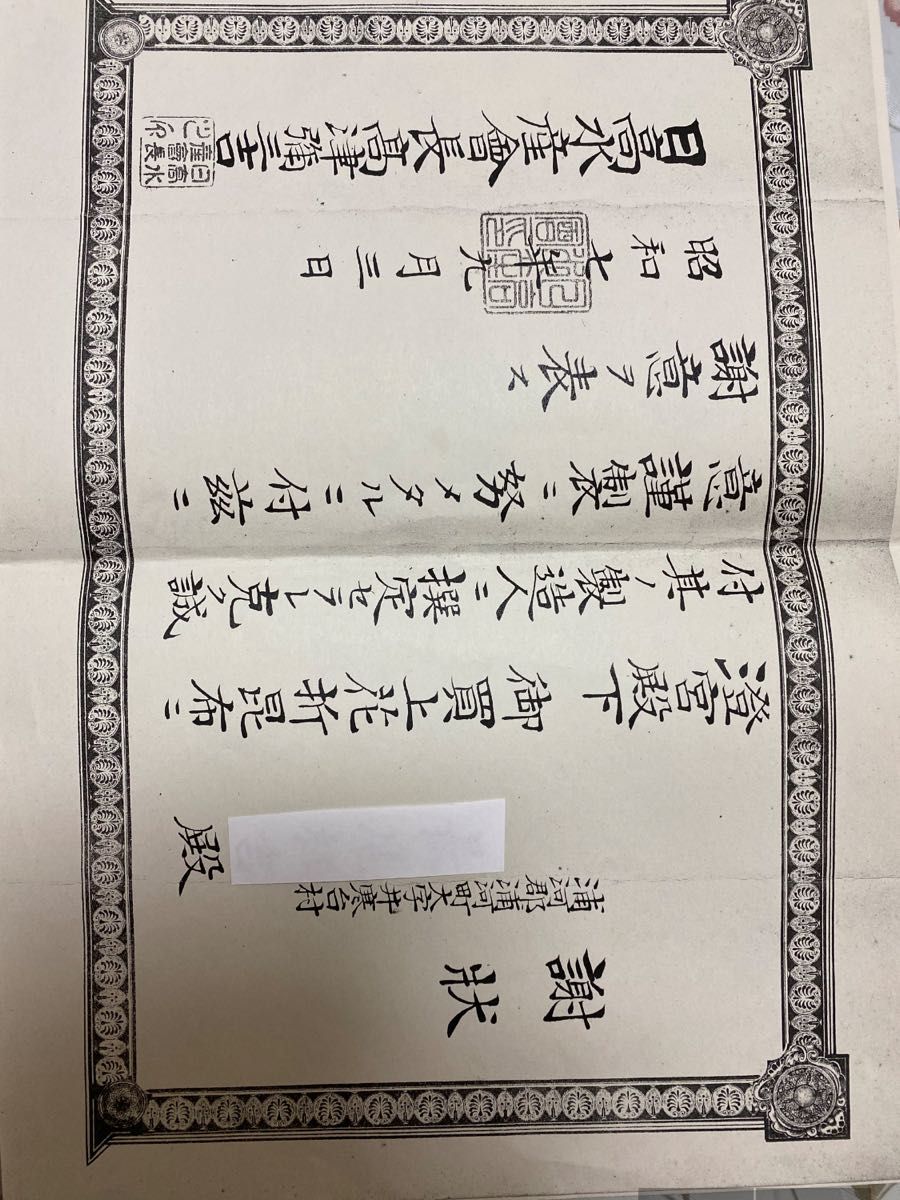 謝狀
浦河郡浦河町大字井寒台村
殿
澄宮殿下 御買上花折昆布ニ
付其ノ製造人ニ撰定セラレ克ク誠
意謹製ニ努メタルニ付茲ニ
謝意ヲ表ス
昭和七年九月三日
日高水産會長髙津彌三吉
日高水
産會長
之印